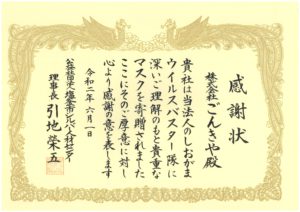 感謝状
株式会社
ごんきや殿
貴社は当法人のしおがま
ウイルスバスター隊に
深いご理解のもと貴重な
マスクを寄贈されました
ここにそのご厚意に対し
心より感謝の意を表します
令和二年六月一日
公益社団法人塩釜市シルバー人材センター
理事長 引地榮五